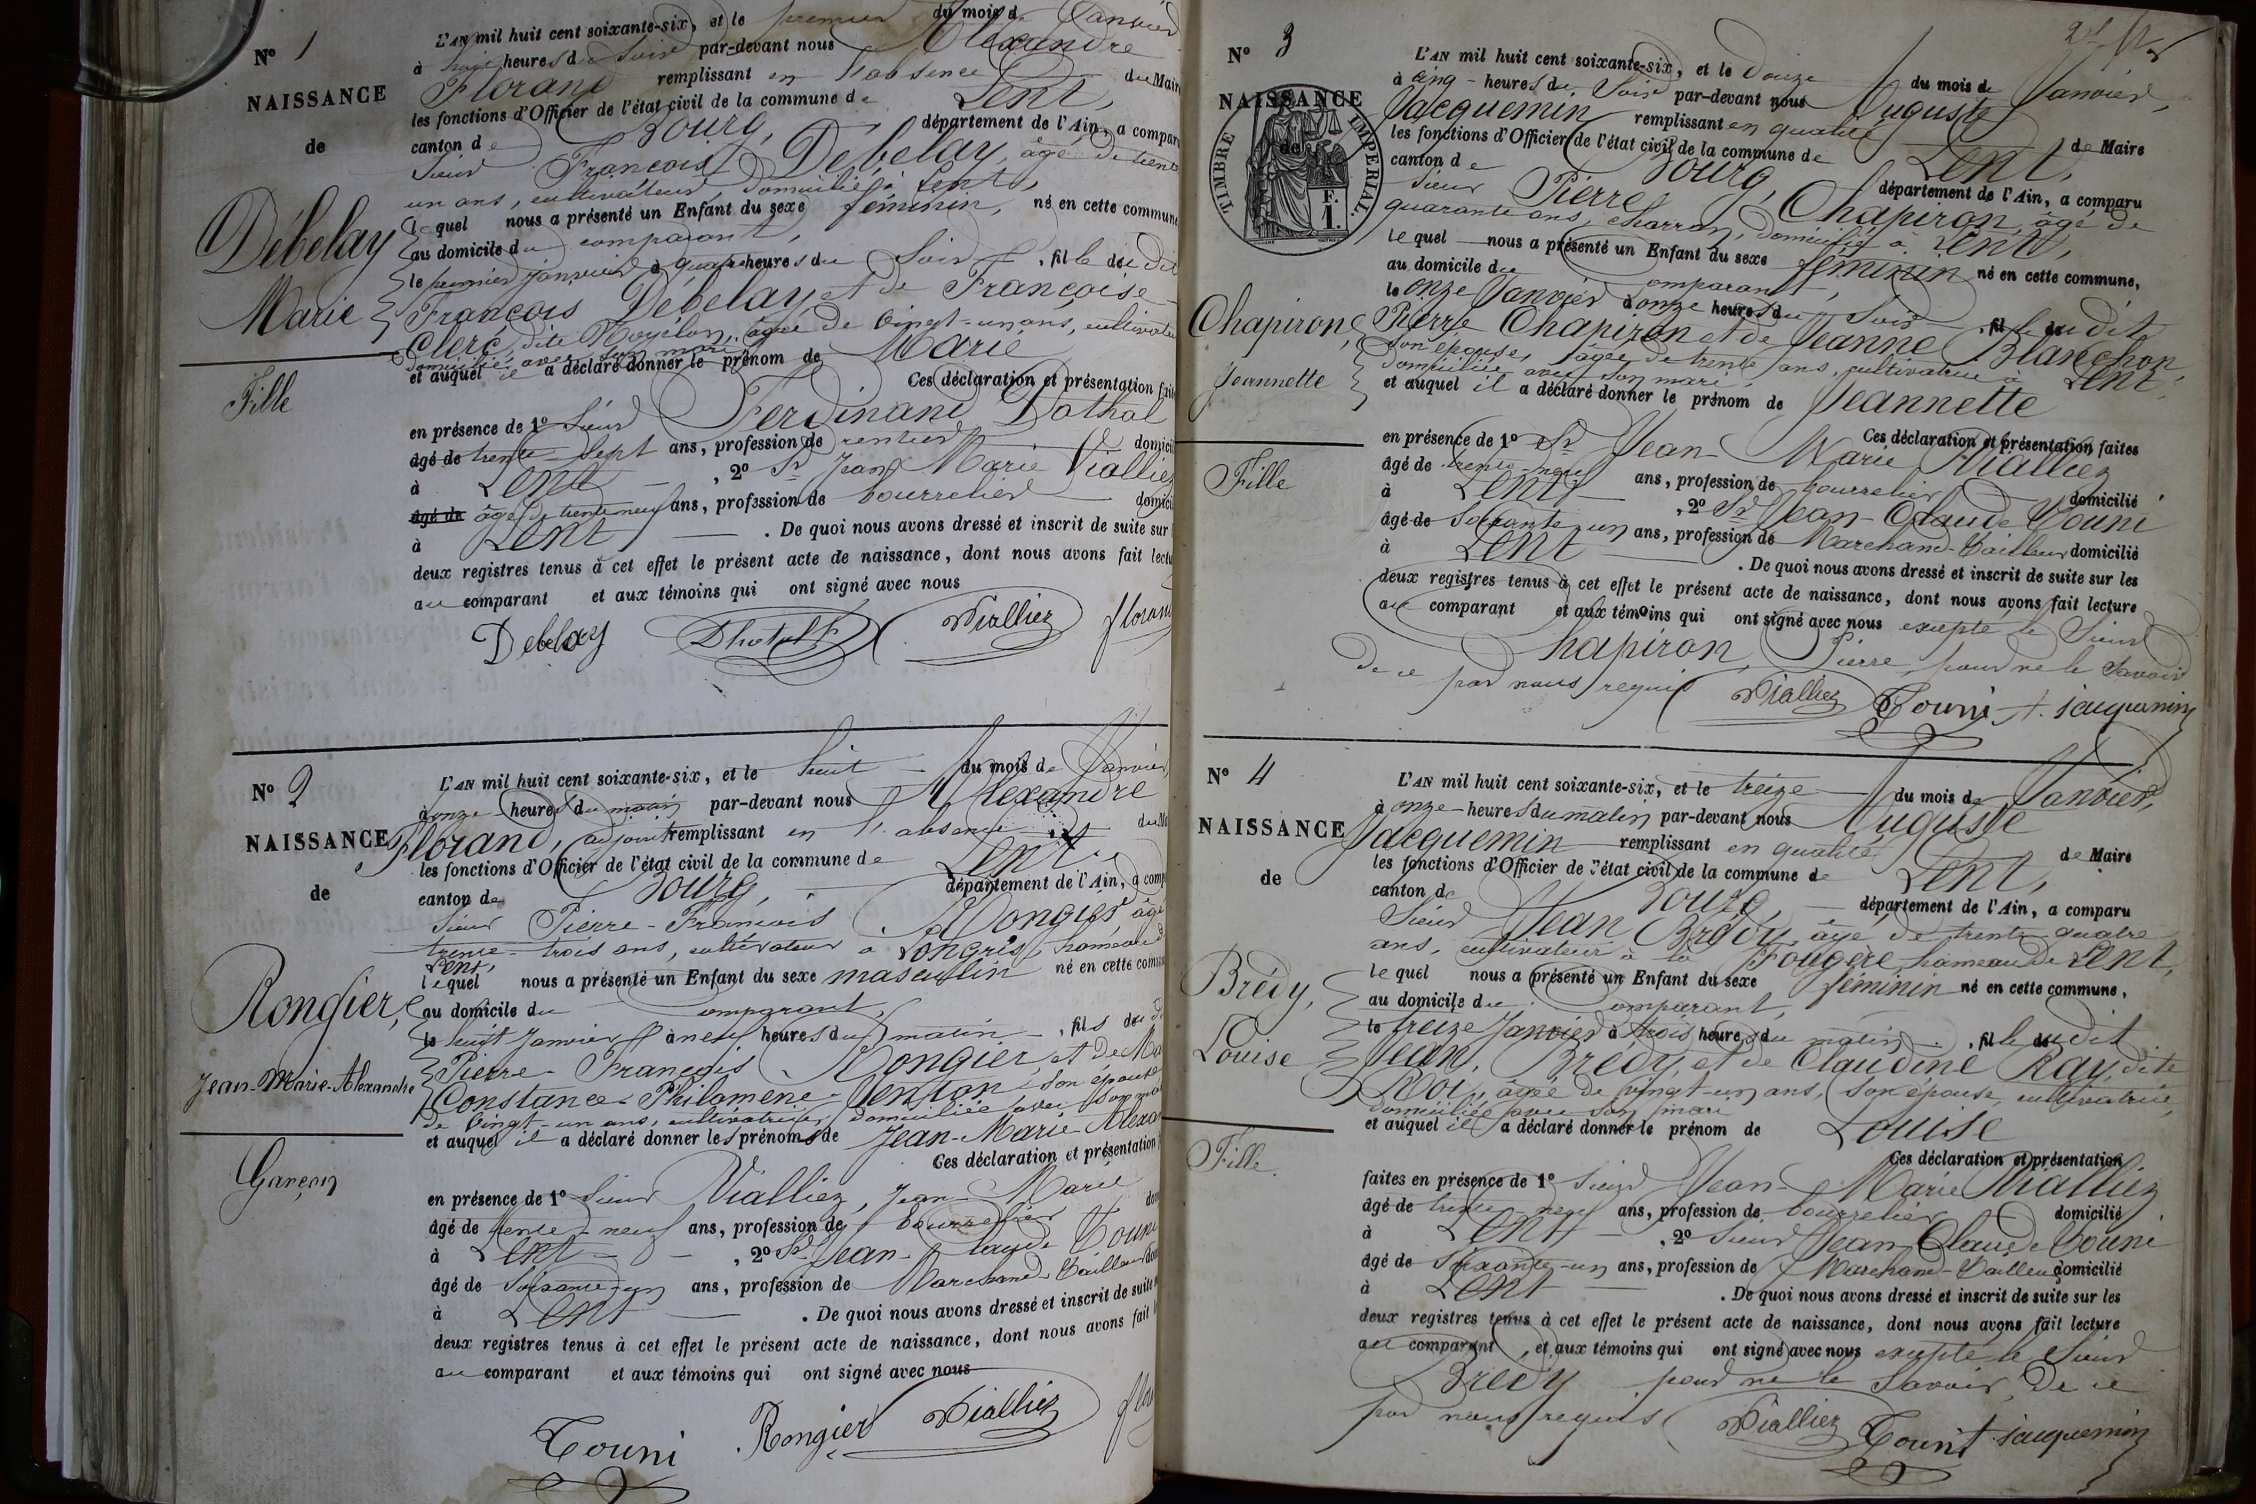 N° 1
NAISSANCE
de
Débelay
Marie
Fille
L'AN mil huit cent soixante-six, et le premier du mois de Janvier
à heures du soir par-devant nous Alexandre
Florand remplissant en l'absence du Mair
les fonctions d'Officier de l'état civil de la commune de Lent,
canton de Bourg, département de l'Ain, a compar
Sieur François Débelay, âgé de trente
un ans, cultivateur, domicilié à Lent,
lequel nous a présenté un Enfant du sexe féminin, né en cette commune
au domicile du comparant,
le premier janvier à quatre heures du soir, fille du dit
François Débelay, et de Françoise
Clerc, dite âgée de vingt-un ans, cultivatr
domiciliée avec son mari
et auquel il a déclaré donner le prénom de Marie
Ces déclaration et présentation faite
en présence de 1° Sieur Ferdinand Dothal
âgé de trente-sept ans, profession de rentier domicil
à Lent, 2° Sr Jean Marie Viallier
âgé de âgé de trente neuf ans, profession de bourrelier domicil
à Lent. De quoi nous avons dressé et inscrit de suite sur
deux registres tenus à cet effet le présent acte de naissance, dont nous avons fait lectu
au comparant et aux témoins qui ont signé avec nous
Debelay Dhotal Vialliez floran
N° 2
NAISSANCE
de
Rongier,
Jean-Marie-Alexandre
Garçon
L'AN mil huit cent soixante-six, et le huit du mois de Janvier
à onze heures du matin par-devant nous Alexandre
Florand, adjoint remplissant en l'absence du Ma
les fonctions d'Officier de l'état civil de la commune de Lent,
canton de Bourg, département de l'Ain, a comp
Sieur Pierre-François Rongier âgé
trente-trois ans, cultivateur à Longris, hameau d
Lent,
lequel nous a présenté un Enfant du sexe masculin né en cette commu
au domicile du comparant,
le huit Janvier à neuf heures du matin, fils du d
Pierre-François Rongier, et de Ma
Constance-Philomène son épouse
de vingt-un ans, cultivatrice, domiciliée avec son ma
et auquel il a déclaré donner les prénoms de Jean-Marie-Alexa
Ces déclaration et présentation
en présence de 1° Sieur Vialliez, Jean-Marie
âgé de trente-neuf ans, profession de bourrelier dom
à Lent, 2° Sr Jean-Claude Touni
âgé de soixante-un ans, profession de Marchand-Tailleur dom
à Lent. De quoi nous avons dressé et inscrit de suite
deux registres tenus à cet effet le présent acte de naissance, dont nous avons fait
au comparant et aux témoins qui ont signé avec nous
Touni Rongier Vialliez flo
N° 3
NAISSANCE
de
TIMBRE IMPERIAL.
F.
1.
Chapiron,
Jeannette
Fille
L'AN mil huit cent soixante-six, et le douze du mois de Janvier,
à cinq heures du soir par-devant nous Auguste
Jacquemin remplissant en qualité de Maire
les fonctions d'Officier de l'état civil de la commune de Lent,
canton de Bourg, département de l'Ain, a comparu
Sieur Pierre Chapiron, âgé de
quarante ans, charron, domicilié à Lent,
lequel nous a présenté un Enfant du sexe féminin né en cette commune,
au domicile du comparant,
le onze Janvier à onze heures du soir, fille du dit
Pierre Chapiron et de Jeanne Blanchon
son épouse, âgée de trente ans, cultivatrice à Lent,
domiciliée avec son mari
et auquel il a déclaré donner le prénom de Jeannette
Ces déclaration et présentation faites
en présence de 1° Sr Jean-Marie Vialliez
âgé de trente-neuf ans, profession de bourrelier domicilié
à Lent, 2° Sr Jean-Claude Touni
âgé de soixante-un ans, profession de Marchand-Tailleur domicilié
à Lent. De quoi nous avons dressé et inscrit de suite sur les
deux registres tenus à cet effet le présent acte de naissance, dont nous avons fait lecture
au comparant et aux témoins qui ont signé avec nous excepté le Sieur
Chapiron, Pierre, pour ne le savoir
de ce par nous requis Vialliez Touni A. jacquemin
N° 4
NAISSANCE
de
Brédy,
Louise
Fille.
L'AN mil huit cent soixante-six, et le treize du mois de Janvier,
à onze heures du matin par-devant nous Auguste
Jacquemin remplissant en qualité de Maire
les fonctions d'Officier de l'état civil de la commune de Lent,
canton de Bourg, département de l'Ain, a comparu
Sieur Jean Brédy, âgé de trente-quatre
ans, cultivateur à la Fougère, hameau de Lent,
lequel nous a présenté un Enfant du sexe féminin né en cette commune,
au domicile du comparant,
le treize Janvier à trois heures du matin, fille du dit
Jean, Brédy, et de Claudine Ray, dite
âgée de vingt-un ans, son épouse, cultivatrice,
domiciliée avec son mari
et auquel il a déclaré donner le prénom de Louise
Ces déclaration et présentation
faites en présence de 1° Sieur Jean-Marie Vialliez
âgé de trente-neuf ans, profession de bourrelier domicilié
à Lent, 2° Sieur Jean-Claude Touni
âgé de soixante-un ans, profession de Marchand-Tailleur domicilié
à Lent. De quoi nous avons dressé et inscrit de suite sur les
deux registres tenus à cet effet le présent acte de naissance, dont nous avons fait lecture
au comparant, et aux témoins qui ont signé avec nous excepté le Sieur
Brédy pour ne le savoir, de ce
par nous requis Vialliez Touni A. jacquemin